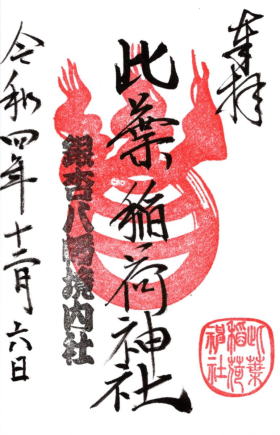 奉拝
此葉稲荷神社
銀杏八幡境内社
令和四年十二月六日
此葉
稲荷
神社